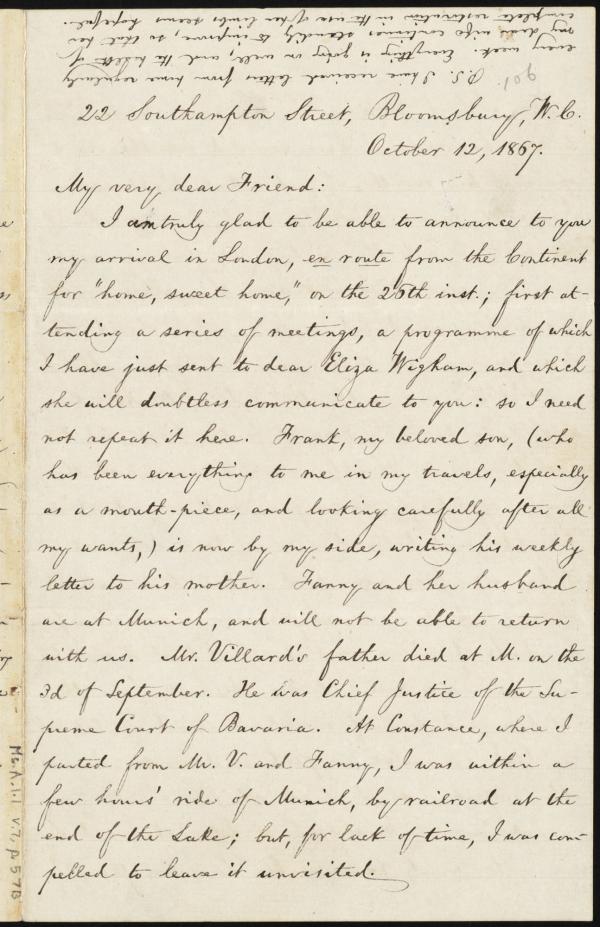 P.S. I have received letters from home regularly
every week. Everything is going on well, and the health of
my dear wife continues steadily to improve, so that her
complete restoration in the use of her limbs seems hopeful.
106
22 Southampton Street, Bloomsbury, W. C.
October 12, 1867.
My very dear Friend:
I am truly glad to be able to announce to you
my arrival in London, en route from the Continent
for "home, sweet home," on the 26th inst.; first at-
tending a series of meetings, a programme of which
I have just sent to dear Eliza Wigham, and which
she will doubtless communicate to you: so I need
not repeat it here. Frank, my beloved son, (who
has been everything to me in my travels, especially
as a mouth-piece, and looking carefully after all
my wants,) is now by my side, writing his weekly
letter to his mother. Fanny and her husband
are at Munich, and will not be able to return
with us. Mr. Villard's father died at M. on the
3d of September. He was Chief Justice of the Su-
preme Court of Bavaria. At Constance, where I
parted from Mr. V. and Fanny, I was within a
few hours' ride of Munich, by railroad at the
end of the Lake; but, for lack of time, I was com-
pelled to leave it unvisited.
Ms.A.1.1 v.7, p.57B